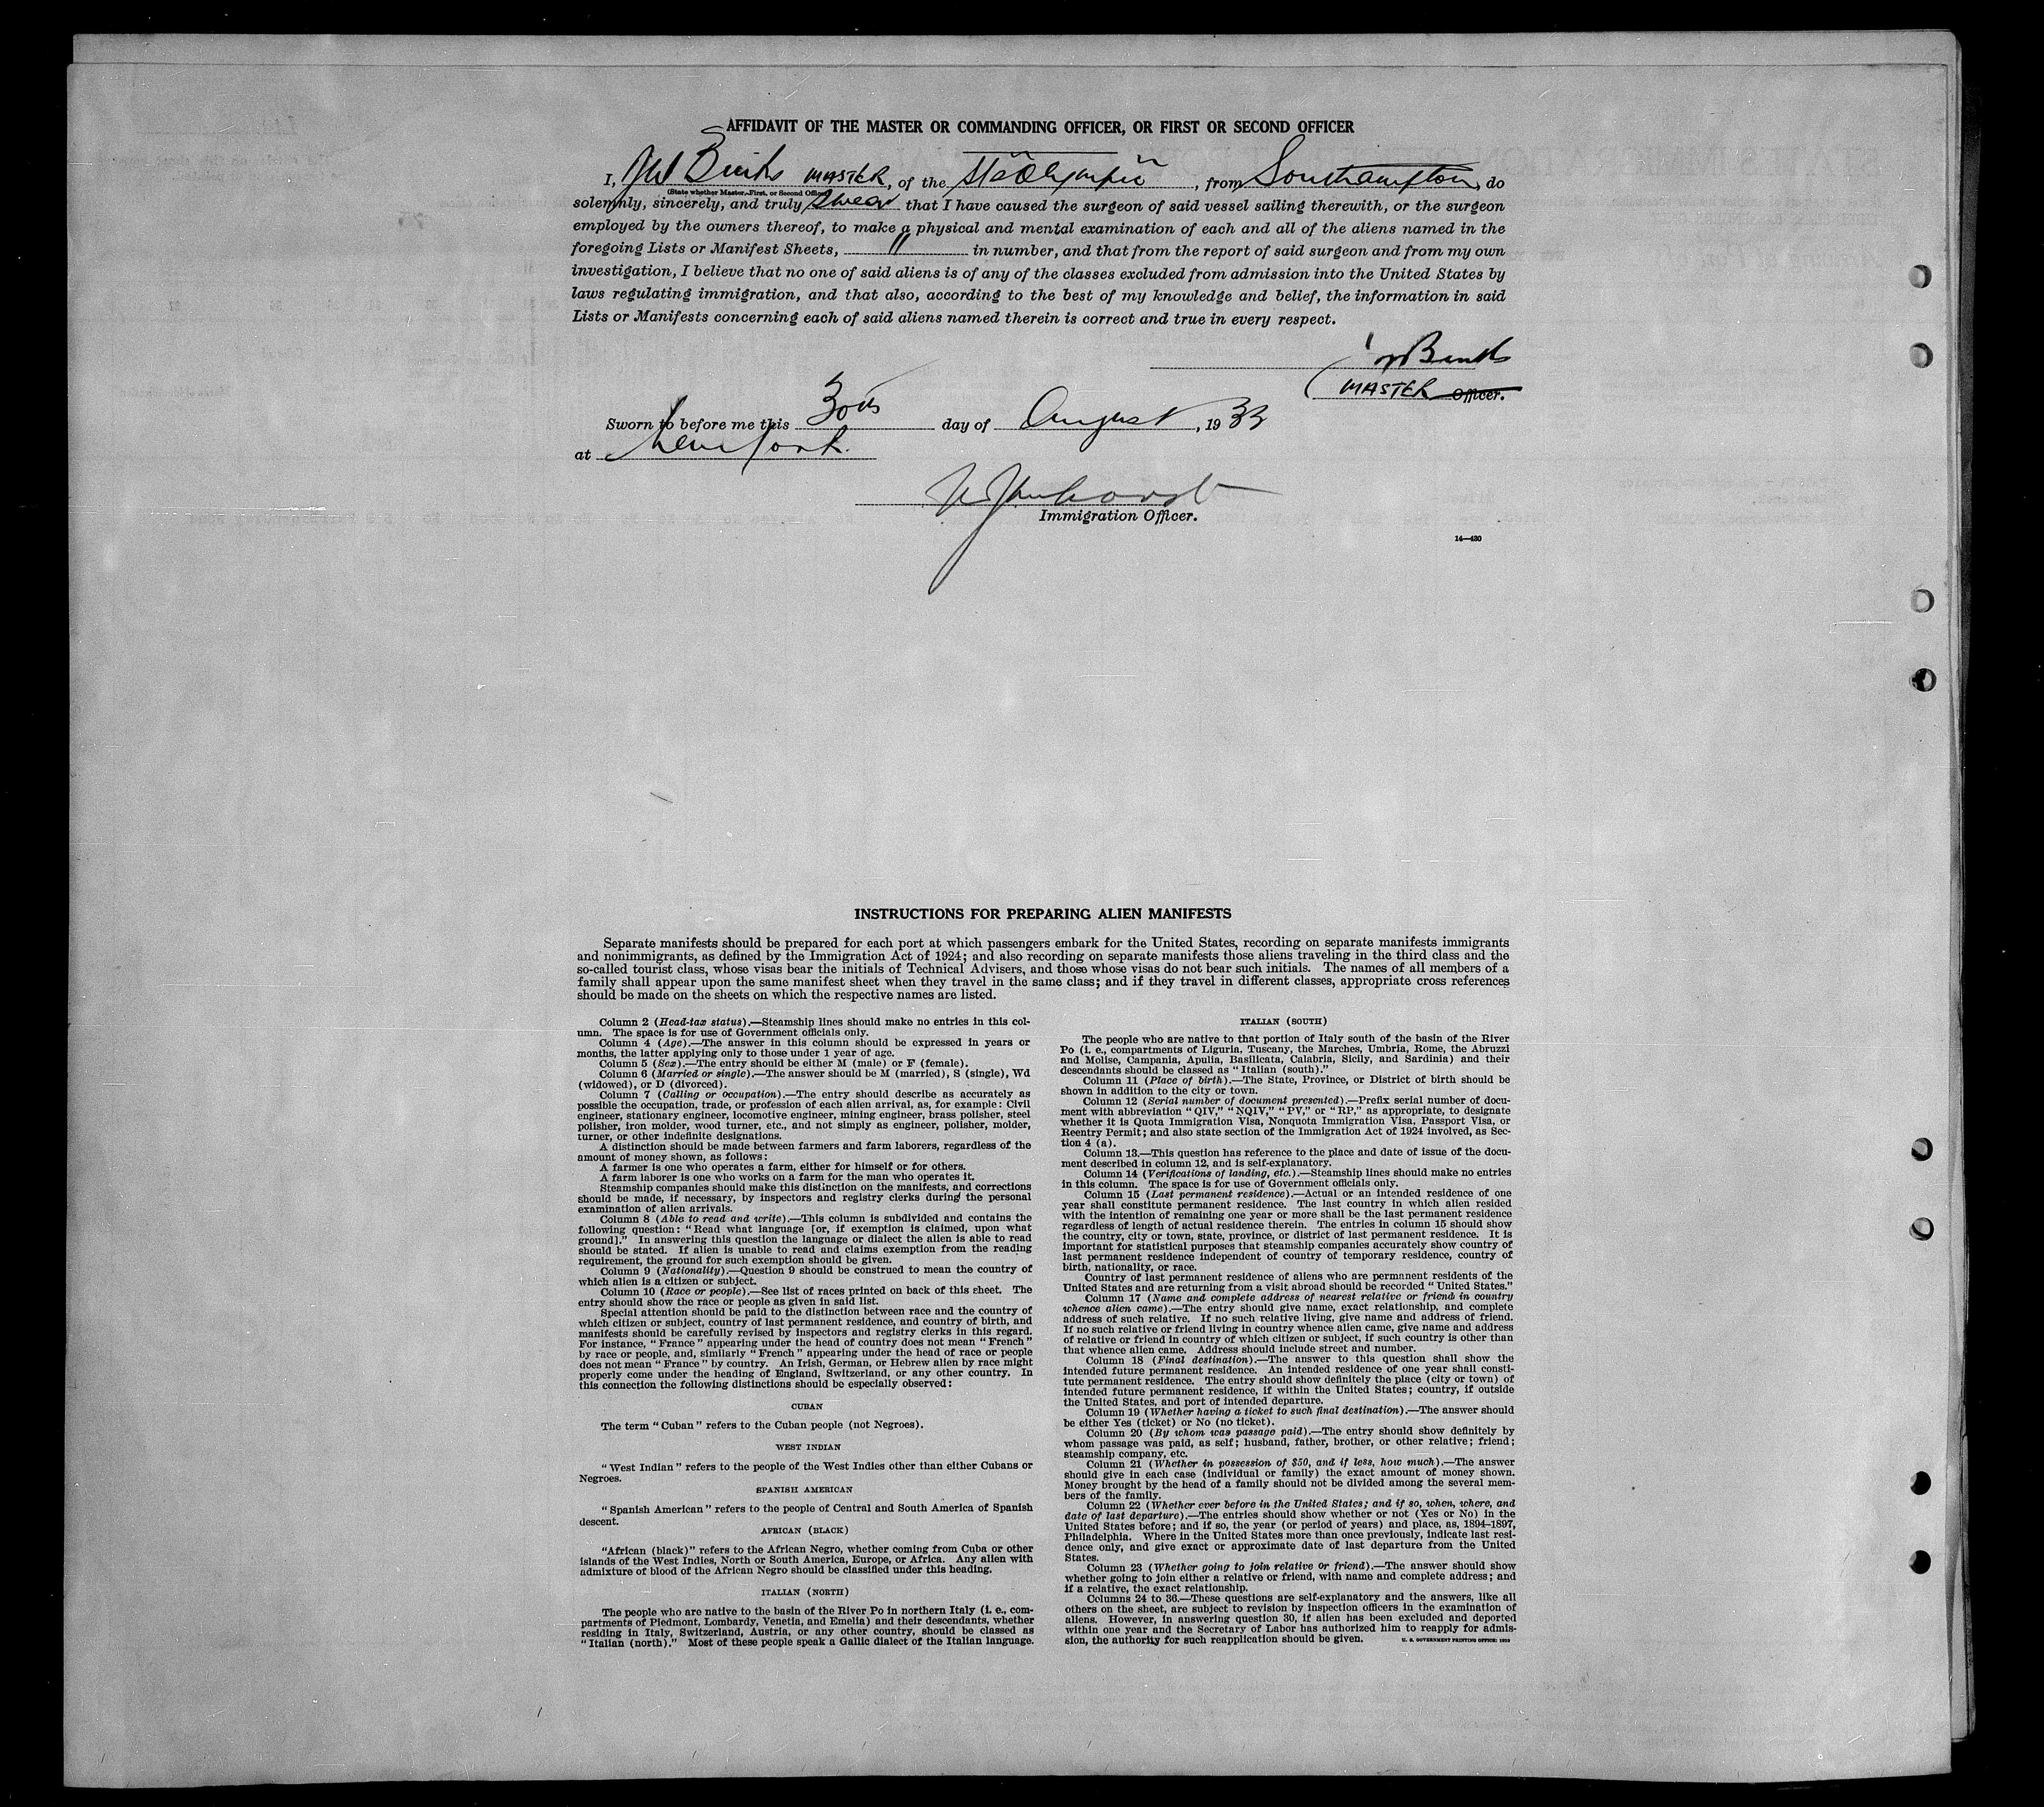 AFFIDAVIT OF THE MASTER OR COMMANDING OFFICER, OR FIRST OR SECOND OFFICER
I, Binks MASTER, of the "Olympic", from Southampton, do
(State whether Master, First, or Second Officer)
solemnly, sincerely, and truly swear that I have caused the surgeon of said vessel sailing therewith, or the surgeon
employed by the owners thereof, to make a physical and mental examination of each and all of the aliens named in the
foregoing Lists or Manifest Sheets, 11 in number, and that from the report of said surgeon and from my own
investigation, I believe that no one of said aliens is of any of the classes excluded from admission into the United States by
laws regulating immigration, and that also, according to the best of my knowledge and belief, the information in said
Lists or Manifests concerning each of said aliens named therein is correct and true in every respect.
Binks
MASTER Officer.
Sworn to before me this 30th day of August, 1933
at New York.
Immigration Officer.
14—430
INSTRUCTIONS FOR PREPARING ALIEN MANIFESTS
Separate manifests should be prepared for each port at which passengers embark for the United States, recording on separate manifests immigrants
and nonimmigrants, as defined by the Immigration Act of 1924; and also recording on separate manifests those aliens traveling in the third class and the
so-called tourist class, whose visas bear the initials of Technical Advisers, and those whose visas do not bear such initials. The names of all members of a
family shall appear upon the same manifest sheet when they travel in the same class; and if they travel in different classes, appropriate cross references
should be made on the sheets on which the respective names are listed.
Column 2 (Head-tax status).—Steamship lines should make no entries in this col-
umn. The space is for use of Government officials only.
Column 4 (Age).—The answer in this column should be expressed in years or
months, the latter applying only to those under 1 year of age.
Column 5 (Sex).—The entry should be either M (male) or F (female).
Column 6 (Married or single).—The answer should be M (married), S (single), Wd
(widowed), or D (divorced).
Column 7 (Calling or occupation).—The entry should describe as accurately as
possible the occupation, trade, or profession of each alien arrival, as, for example: Civil
engineer, stationary engineer, locomotive engineer, mining engineer, brass polisher, steel
polisher, iron molder, wood turner, etc., and not simply as engineer, polisher, molder,
turner, or other indefinite designations.
A distinction should be made between farmers and farm laborers, regardless of the
amount of money shown, as follows:
A farmer is one who operates a farm, either for himself or for others.
A farm laborer is one who works on a farm for the man who operates it.
Steamship companies should make this distinction on the manifests, and corrections
should be made, if necessary, by inspectors and registry clerks during the personal
examination of alien arrivals.
Column 8 (Able to read and write).—This column is subdivided and contains the
following question: "Read what language [or, if exemption is claimed, upon what
ground]." In answering this question the language or dialect the alien is able to read
should be stated. If alien is unable to read and claims exemption from the reading
requirement, the ground for such exemption should be given.
Column 9 (Nationality).—Question 9 should be construed to mean the country of
which alien is a citizen or subject.
Column 10 (Race or people).—See list of races printed on back of this sheet. The
entry should show the race or people as given in said list.
Special attention should be paid to the distinction between race and the country of
which citizen or subject, country of last permanent residence, and country of birth, and
manifests should be carefully revised by inspectors and registry clerks in this regard.
For instance, "France" appearing under the head of country does not mean "French"
by race or people, and, similarly "French" appearing under the head of race or people
does not mean "France" by country. An Irish, German, or Hebrew alien by race might
properly come under the heading of England, Switzerland, or any other country. In
this connection the following distinctions should be especially observed:
CUBAN
The term "Cuban" refers to the Cuban people (not Negroes).
WEST INDIAN
"West Indian" refers to the people of the West Indies other than either Cubans or
Negroes.
SPANISH AMERICAN
"Spanish American" refers to the people of Central and South America of Spanish
descent.
AFRICAN (BLACK)
"African (black)" refers to the African Negro, whether coming from Cuba or other
islands of the West Indies, North or South America, Europe, or Africa. Any alien with
admixture of blood of the African Negro should be classified under this heading.
ITALIAN (NORTH)
The people who are native to the basin of the River Po in northern Italy (i. e., com-
partments of Piedmont, Lombardy, Venetia, and Emelia) and their descendants, whether
residing in Italy, Switzerland, Austria, or any other country, should be classed as
"Italian (north)." Most of these people speak a Gallic dialect of the Italian language.
ITALIAN (SOUTH)
The people who are native to that portion of Italy south of the basin of the River
Po (i. e., compartments of Liguria, Tuscany, the Marches, Umbria, Rome, the Abruzzi
and Molise, Campania, Apulia, Basilicata, Calabria, Sicily, and Sardinia) and their
descendants should be classed as "Italian (south)."
Column 11 (Place of birth).—The State, Province, or District of birth should be
shown in addition to the city or town.
Column 12 (Serial number of document presented).—Prefix serial number of docu-
ment with abbreviation "QIV," "NQIV," "PV," or "RP," as appropriate, to designate
whether it is Quota Immigration Visa, Nonquota Immigration Visa, Passport Visa, or
Reentry Permit; and also state section of the Immigration Act of 1924 involved, as Sec-
tion 4 (a).
Column 13.—This question has reference to the place and date of issue of the docu-
ment described in column 12, and is self-explanatory.
Column 14 (Verifications of landing, etc.).—Steamship lines should make no entries
in this column. The space is for use of Government officials only.
Column 15 (Last permanent residence).—Actual or an intended residence of one
year shall constitute permanent residence. The last country in which alien resided
with the intention of remaining one year or more shall be the last permanent residence
regardless of length of actual residence therein. The entries in column 15 should show
the country, city or town, state, province, or district of last permanent residence. It is
important for statistical purposes that steamship companies accurately show country of
last permanent residence independent of country of temporary residence, country of
birth, nationality, or race.
Country of last permanent residence of aliens who are permanent residents of the
United States and are returning from a visit abroad should be recorded "United States."
Column 17 (Name and complete address of nearest relative or friend in country
whence alien came).—The entry should give name, exact relationship, and complete
address of such relative. If no such relative living, give name and address of friend.
If no such relative or friend living in country whence alien came, give name and address
of relative or friend in country of which citizen or subject, if such country is other than
that whence alien came. Address should include street and number.
Column 18 (Final destination).—The answer to this question shall show the
intended future permanent residence. An intended residence of one year shall consti-
tute permanent residence. The entry should show definitely the place (city or town) of
intended future permanent residence, if within the United States; country, if outside
the United States, and port of intended departure.
Column 19 (Whether having a ticket to such final destination).—The answer should
be either Yes (ticket) or No (no ticket).
Column 20 (By whom was passage paid).—The entry should show definitely by
whom passage was paid, as self; husband, father, brother, or other relative; friend;
steamship company, etc.
Column 21 (Whether in possession of $50, and if less, how much).—The answer
should give in each case (individual or family) the exact amount of money shown.
Money brought by the head of a family should not be divided among the several mem-
bers of the family.
Column 22 (Whether ever before in the United States; and if so, when, where, and
date of last departure).—The entries should show whether or not (Yes or No) in the
United States before; and if so, the year (or period of years) and place, as, 1894–1897,
Philadelphia. Where in the United States more than once previously, indicate last resi-
dence only, and give exact or approximate date of last departure from the United
States.
Column 23 (Whether going to join relative or friend).—The answer should show
whether going to join either a relative or friend, with name and complete address; and
if a relative, the exact relationship.
Columns 24 to 36.—These questions are self-explanatory and the answers, like all
others on the sheet, are subject to revision by inspection officers in the examination of
aliens. However, in answering question 30, if alien has been excluded and deported
within one year and the Secretary of Labor has authorized him to reapply for admis-
sion, the authority for such reapplication should be given.
U. S. GOVERNMENT PRINTING OFFICE: